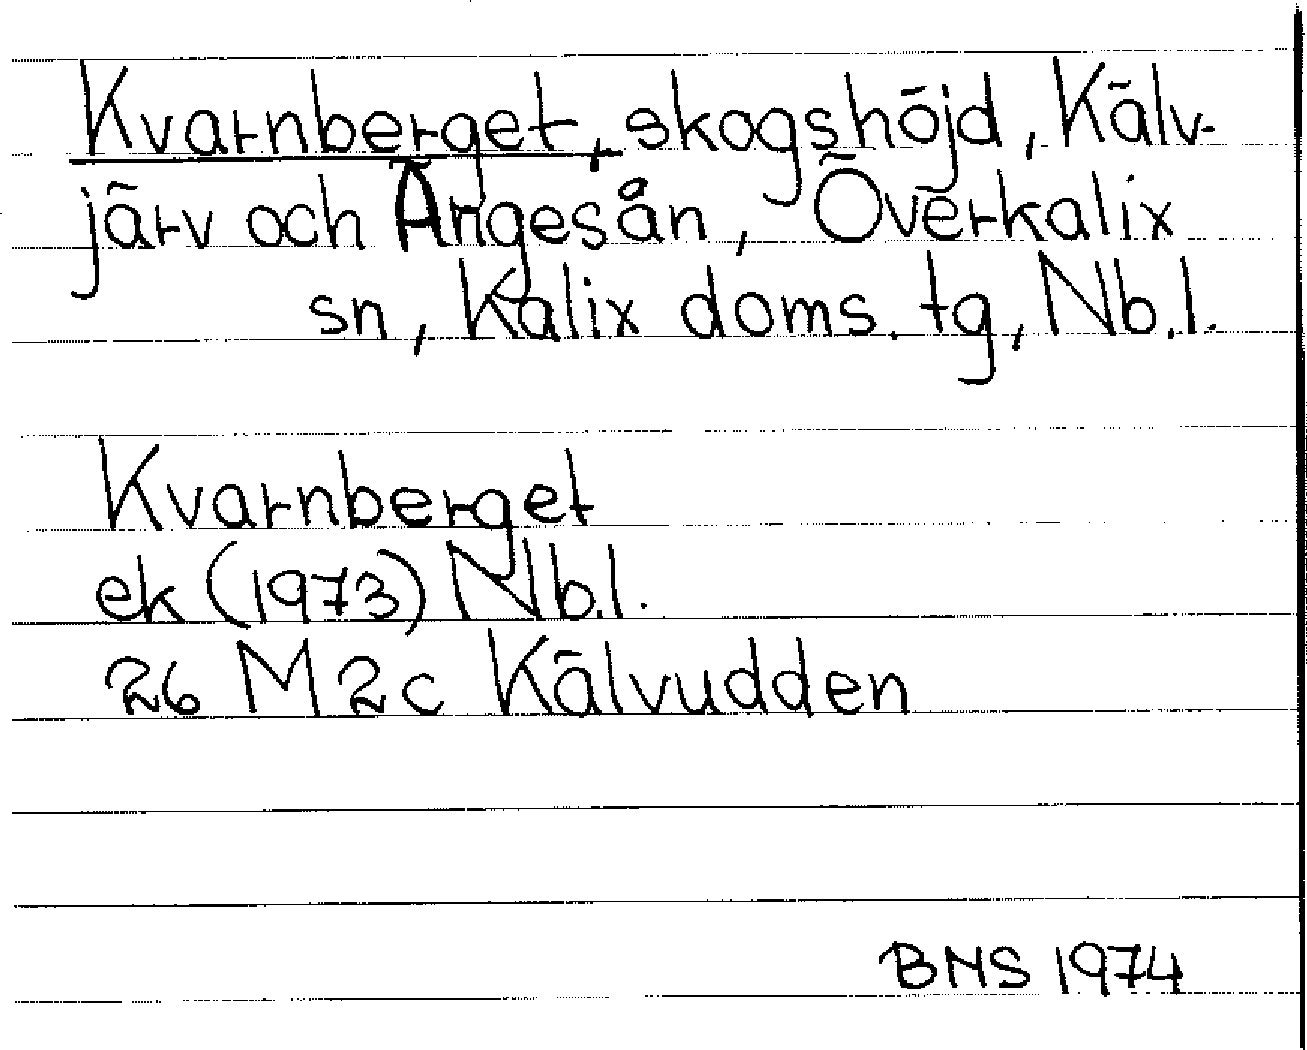 Kvarnberget, skogshöjd, Kälv-
järv och Ängesån, Överkalix
sn, Kalix doms. tg, Nb.l.
Kvarnberget
ek (1973) Nb.l.
26 M 2c Kälvudden
BNS 1974